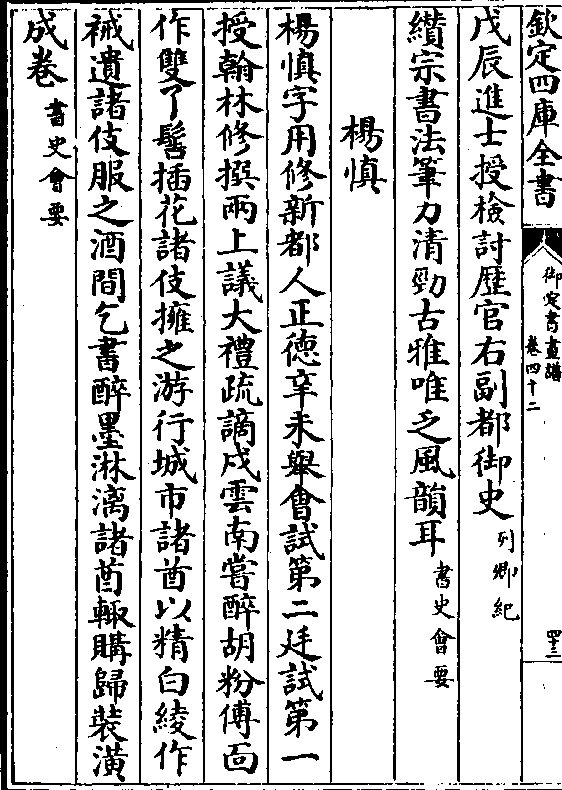 欽定四庫全書
御定書畫譜
卷四十二
四十三
戊辰進士授檢討歷官右副都御史列卿紀
纘宗書法筆力清勁古雅唯乏風韻耳書史會要
楊慎
楊慎字用修新都人正德辛未舉會試第二廷試第一
授翰林修撰兩上議大禮疏謫戍雲南嘗醉胡粉傅面
作雙丫髻插花諸伎擁之游行城市諸酋以精白綾作
祴遺諸伎服之酒間乞書醉墨淋漓諸酋輙購歸裝潢
成卷書史會要